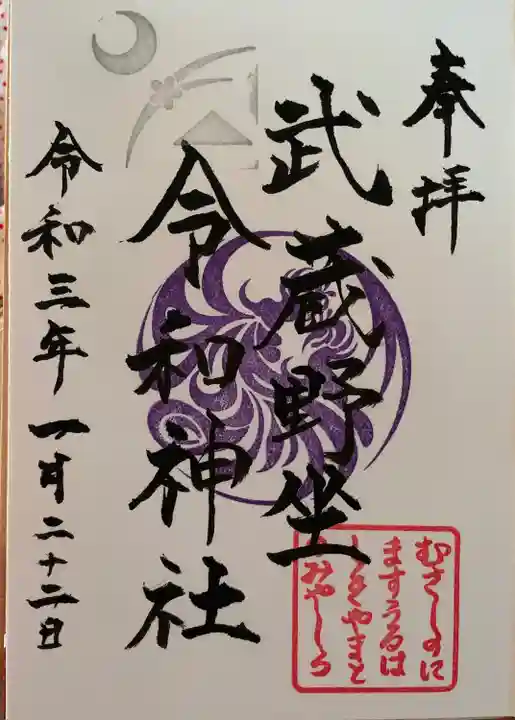 奉拝
武蔵野坐
令和神社
令和三年一月二十二日
むさしのに
ますうるは
しきやまと
のみやしろ